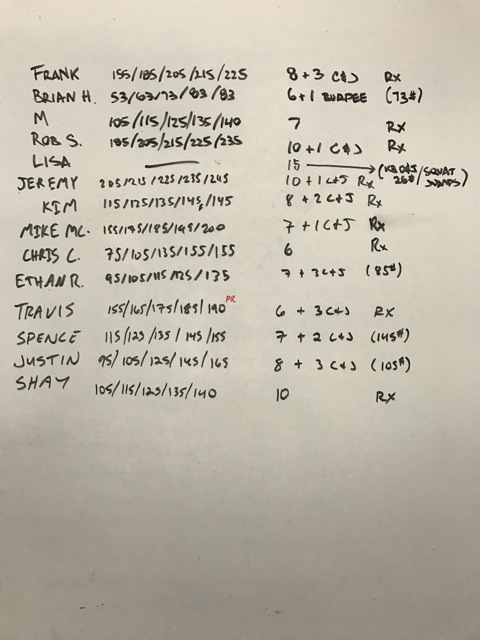 FRANK 155/185/205/215/225 8+3 C&J Rx
BRIAN H. 53/63/73/83/83 6+1 BURPEE (73#)
M 105/115/125/135/140 7 Rx
ROB S. 185/205/215/225/235 10+1 C&J Rx
LISA 15 (KB OHS 26#/SQUAT JUMPS)
JEREMY 205/215/225/235/245 10+1 C+J Rx
KIM 115/125/135/145/145 8+2 C+J Rx
MIKE MC. 155/175/185/195/200 7+1 C+J Rx
CHRIS C. 75/105/135/155/155 6 Rx
ETHAN R. 95/105/115/125/135 7+3 C+J (85#)
TRAVIS 155/165/175/185/190 PR 6 + 3 C&J Rx
SPENCE 115/125/135/145/155 7 + 2 C&J (145#)
JUSTIN 95/105/125/145/165 8 + 3 C&J (105#)
SHAY 105/115/125/135/140 10 Rx